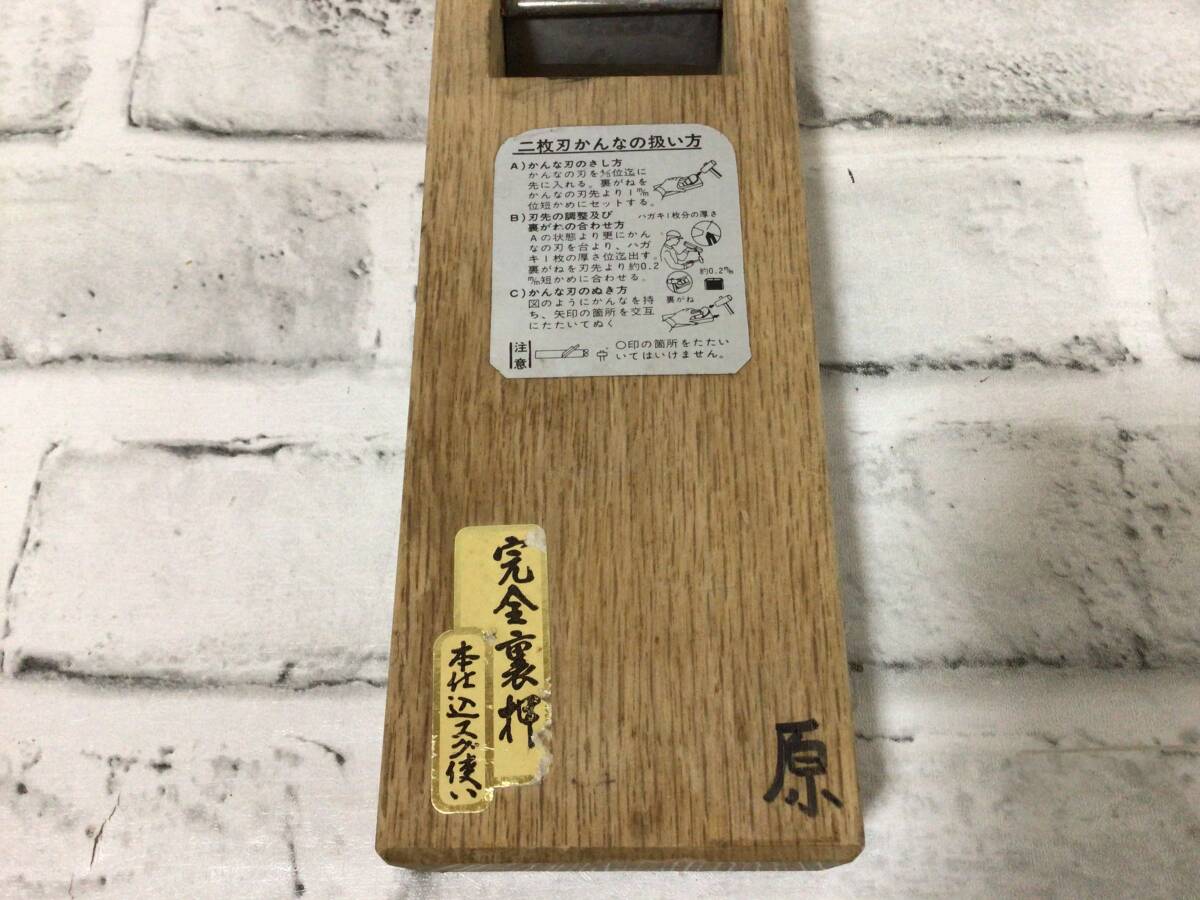 二枚刃かんなの扱い方
A)かんな刃のさし方
かんなの刃を⅘位迄に
先に入れる。裏がねを
かんなの刃先より1㎜
位短かめにセットする。
B)刃先の調整及び
裏がねの合わせ方
Aの状態より更にかん
なの刃を台より、ハガ
キ1枚の厚さ位迄出す。
裏がねを刃先より約0.2
㎜短かめに合わせる。
ハガキ1枚分の厚さ
約0.2㎜
裏がね
C)かんな刃のぬき方
図のようにかんなを持
ち、矢印の箇所を交互
にたたいてぬく
注意
○印の箇所をたたい
いてはいけません。
完全裏押
本仕込スグ使い
原